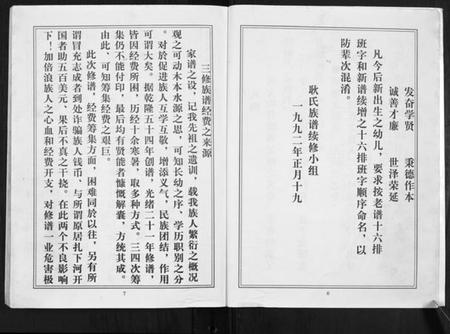 发奋学贤　秉德作本
诚善才廉　世泽荣延
凡今后新出生之幼儿，要求按老谱十六排
班字和新谱续增之十六排班字顺序命名，以
防辈次混淆。
耿氏族谱续修小组
一九九二年正月十九
6
三修族谱经费之来源
家谱之设，记我先祖之遗训，载我族人繁衍之概况
观之可动木本水源之思，可知长幼之序、学历职别之分
。对於促进族人互学互敬，增添义气，民族团结，作用
可谓大矣。据乾隆五十四年创谱，光绪二十一年修谱，
皆因经费所困，历经十余寒暑，取多种方式。三四次筹
集仍不能付印，最后均有贤能者慷慨解囊，方统其成。
由此、可知筹集经费之艰巨。
此次修谱，经费筹集方面，困难同於以往，另有所
谓冒充志成者到处诈骗族人钱币、与所谓原居扎下河开
国者助五百美元、果后不真之干挠。在此两个不良影响
下！加倍浪族人之心血和经费开支，对修谱一业危害极
7